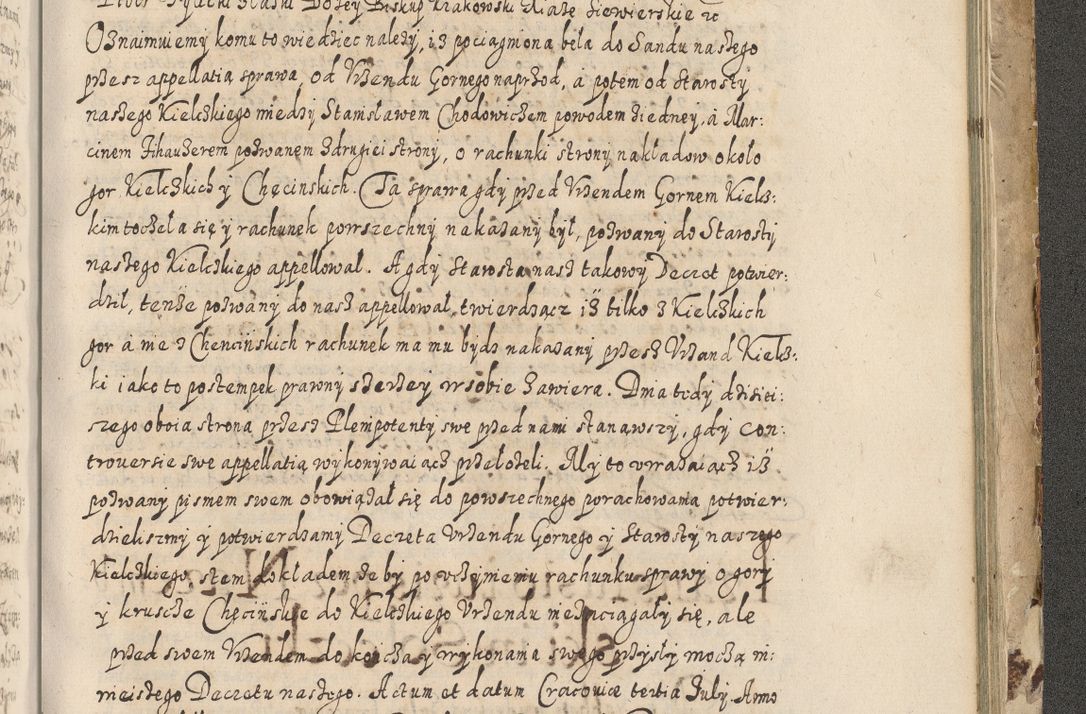 Piotr Tylicki z Łaski Bożey Biskup Krakowski Xiąże Siewierskie etc
Oznaimuiemy komu to wiedziec należy, iż pociągniona była do Sandu naszego
przez appellatią sprawa od Vrzendu Gornego naprzod, a potem od Starosty
naszego Kielczkiego miedzy Stanisławem Chodowiczem powodem ziedney, a Mar:
cinem Jihauzerem pozwanem z drugiei strony, o rachunki strony nakładow około
gor Kielczkich y Chęcinskich. Ta sprawa gdy przed Vrzendem Gornem Kielcz:
kim toczela się y rachunek powszechny nakazany był, pozwany do Starosty
naszego Kielczkiego appellował. A gdy Starosta nasz takowy Decret potwier:
dził, tenże pozwany do nasz appellował, twierdzącz iż tilko z Kielczkich
gor a nie z Chencińskich rachunek ma mu bydz nakazany przesz Vrzand Kielcz:
ki iako to postempek prawny szerzey w sobie zawiera. Dnia tedy dzisiei:
szego oboia strona przesz Plempotenty swe przed nami stanąwszy, gdy con:
trouersie swe appellatią wykonywaiącz przełożeli. My to vważaiącz iż
pozwany pismem swem obowiązał się do powszechnego porachowania potwier:
dzieliszmy y potwierdzamy Decreta Vrzendu Gornego y Starosty naszego
Kielczkiego, s tem dokładem że by po vczynieniu rachunku sprawy o gory
y kruscze Chęcińskie do Kielczkiego Vrzendu nie pociągały się, ale
przed swem Vrzendem do konicza y wykonania swego przyszły moczą ni:
nieiszego Decretu naszego. Actum et datum Cracouiæ tertia July. Anno